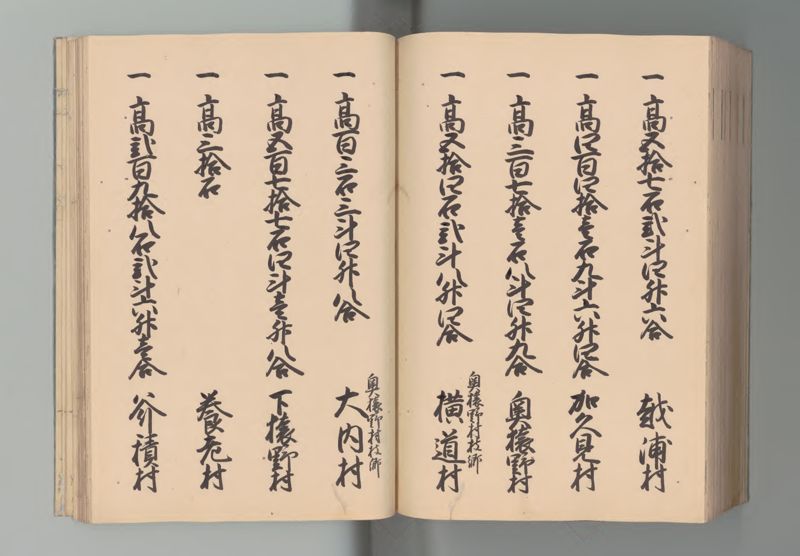 一 高五拾七石弐斗四升六合 越浦村
一 高四百四拾壱石九斗六升四合 加久見村
一 高三百七拾壱石八斗四升九合 奥猿野村
奥猿野村枝郷
一 高五拾四石弐斗八升四合 横道村
奥猿野村枝郷
一 高百三石三斗四升八合 大内村
一 高五百七拾七石四斗壱升八合 下猿野村
一 高三拾石 養老村
一 高弐百九拾八石弐斗六升壱合 積村